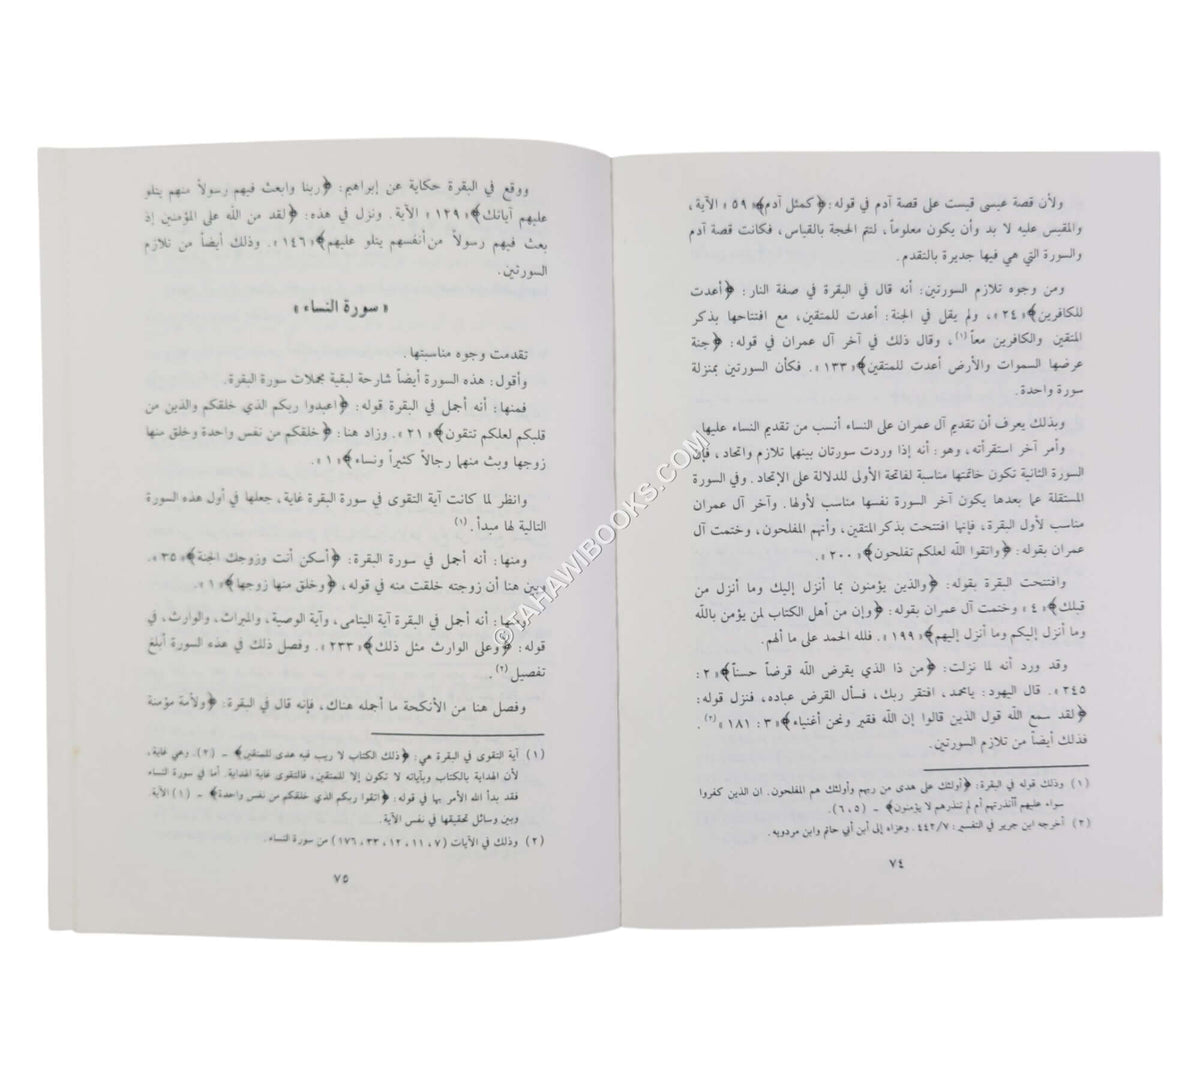 ولأن قصة عيسى قيست على قصة آدم في قوله: ﴿كمثل آدم﴾ «٥٩» الآية،
والمقيس عليه لا بد وأن يكون معلوماً، لتتم الحجة بالقياس، فكانت قصة آدم
والسورة التي هي فيها جديرة بالتقدم.
ومن وجوه تلازم السورتين: أنه قال في البقرة في صفة النار: ﴿أعدت
للكافرين﴾ «٢٤»، ولم يقل في الجنة: أعدت للمتقين، مع افتتاحها بذكر
المتقين والكافرين معاً (١)، وقال ذلك في آخر آل عمران في قوله: ﴿جنة
عرضها السموات والأرض أعدت للمتقين﴾ «١٣٣». فكأن السورتين بمنزلة
سورة واحدة.
وبذلك يعرف أن تقديم آل عمران على النساء أنسب من تقديم النساء عليها.
وأمر آخر استقرأته، وهو: أنه إذا وردت سورتان بينهما تلازم واتحاد، فإن
السورة الثانية تكون خاتمتها مناسبة لفاتحة الأولى للدلالة على الإتحاد. وفي السورة
المستقلة عما بعدها يكون آخر السورة نفسها مناسب لأولها. وآخر آل عمران
مناسب لأول البقرة، فإنها افتتحت بذكر المتقين، وأنهم المفلحون، وختمت آل
عمران بقوله: ﴿واتقوا الله لعلكم تفلحون﴾ «٢٠٠».
وافتتحت البقرة بقوله: ﴿والذين يؤمنون بما أنزل إليك وما أنزل من
قبلك﴾ «٤» وختمت آل عمران بقوله: ﴿وإن من أهل الكتاب لمن يؤمن بالله
وما أنزل إليكم وما أنزل إليهم﴾ «١٩٩». فلله الحمد على ما ألهم.
وقد ورد أنه لما نزلت: ﴿من ذا الذي يقرض الله قرضاً حسناً﴾ «٢:
٢٤٥». قال اليهود: يامحمد، افتقر ربك، فسأل القرض عباده، فنزل قوله:
﴿لقد سمع الله قول الذين قالوا إن الله فقير ونحن أغنياء﴾ «٣: ١٨١» (٢).
فذلك أيضاً من تلازم السورتين.
(١) وذلك قوله في البقرة: ﴿أولئك على هدى من ربهم وأولئك هم المفلحون. ان الذين كفروا
سواء عليهم آأنذرتهم أم لم تنذرهم لا يؤمنون﴾ - (٥، ٦).
(٢) أخرجه ابن جرير في التفسير: ٤٤٢/٧. وعزاه إلى أبن أبي حاتم وابن مردويه.
٧٤
ووقع في البقرة حكاية عن إبراهيم: ﴿ربنا وابعث فيهم رسولاً منهم يتلو
عليهم آياتك﴾ «١٢٩» الآية. ونزل في هذه: ﴿لقد من الله على المؤمنين إذ
بعث فيهم رسولاً من أنفسهم يتلو عليهم﴾ «١٤٦». وذلك أيضاً من تلازم
السورتين.
« سورة النساء »
تقدمت وجوه مناسبتها.
وأقول: هذه السورة أيضاً شارحة لبقية مجملات سورة البقرة.
فمنها: أنه أجمل في البقرة قوله: ﴿اعبدوا ربكم الذي خلقكم والذين من
قلبكم لعلكم تتقون﴾ «٢١». وزاد هنا: ﴿خلقكم من نفس واحدة وخلق منها
زوجها وبث منهما رجالاً كثيراً ونساء﴾ «١».
وانظر لما كانت آية التقوى في سورة البقرة غاية، جعلها في أول هذه السورة
التالية لها مبدأ. (١)
ومنها: أنه أجمل في سورة البقرة: ﴿أسكن أنت وزوجك الجنة﴾ «٣٥».
وبين هنا أن زوجته خلقت منه في قوله، ﴿وخلق منها زوجها﴾ «١».
ومنها: أنه أجمل في البقرة آية اليتامى، وآية الوصية، والميراث، والوارث، في
قوله: ﴿وعلى الوارث مثل ذلك﴾ «٢٣٣». وفصل ذلك في هذه السورة أبلغ
تفصيل (٢).
وفصل هنا من الأنكحة ما أجمله هناك، فإنه قال في البقرة: ﴿ولأمة مؤمنة
(١) آية التقوى في البقرة هي: ﴿ذلك الكتاب لا ريب فيه هدى للمتقين﴾ - (٢). وهي غاية،
لأن الهداية بالكتاب وبآياته لا تكون إلا للمتقين، فالتقوى غاية الهداية. أما في سورة النساء
فقد بدأ الله الأمر بها في قوله: ﴿اتقوا ربكم الذي خلقكم من نفس واحدة﴾ - (١) الآية.
وبين وسائل تحقيقها في نفس الآية.
(٢) وذلك في الآيات (٧، ١١، ١٢، ٣٣، ١٧٦) من سورة النساء.
٧٥
©TAHAWIBOOKS.COM